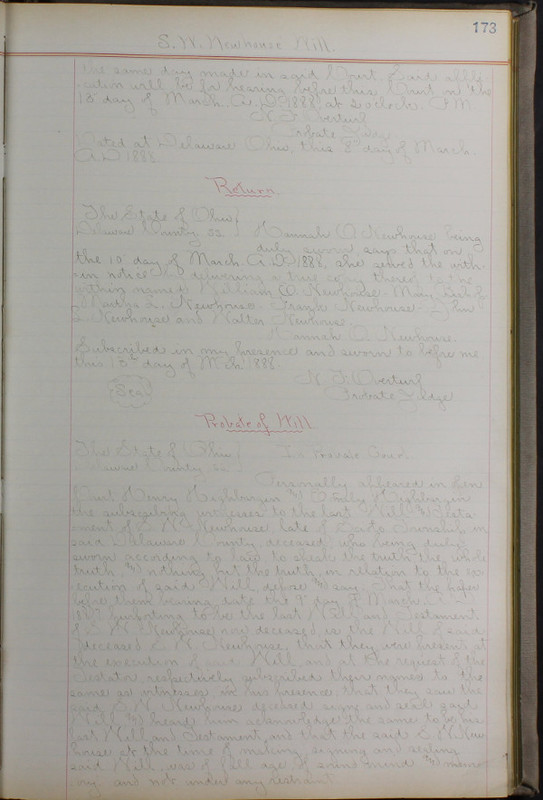 173
S. N. Newhouse Will.
the same day made in said Court. Said appli-
cation will be for hearing before this Court on the
13" day of March A.D. 1888, at 2 o'clock P.M.
N. F. Overturf
Probate Judge
Dated at Delaware Ohio, this 8" day of March
A.D. 1888.
Return.
The State of Ohio
Delaware County ss. Hannah O. Newhouse being
duly sworn says that on
the 10 day of March A.D. 1888, she served the with-
in notice by delivering a true copy thereof to the
within named William O. Newhouse
Newhouse. Newhouse. John
Newhouse and Walter Newhouse.
Hannah O. Newhouse.
Subscribed in my presence and sworn to before me
this 13" day of Mch 1888.
N. F. Overturf
Seal
Probate Judge
Probate of Will.
The State of Ohio
Delaware County ss. In Probate Court.
Personally appeared in open
Court Henry and
the subscribing witnesses to the last Will & Testa-
ment of S. N. Newhouse late of Scioto Township in
said Delaware County deceased, who being duly
sworn according to law to speak the truth the whole
truth & nothing but the truth in relation to the ex-
ecution of said Will depose & say: That the paper
before them bearing date the 9" day of March
purporting to be the last Will and Testament
of S. N. Newhouse now deceased is the Will of said
deceased S. N. Newhouse, that they were present at
the execution of said Will, and at the request of the
testator respectively subscribed their names to the
same as witnesses in his presence, that they saw the
said S. N. Newhouse deceased sign and seal said
Will & heard him acknowledge the same to be his
last Will and Testament, and that the said S. N. New-
house at the time of making, signing and sealing
said Will, was of full age of sound mind & memo-
ry and not under any restraint.